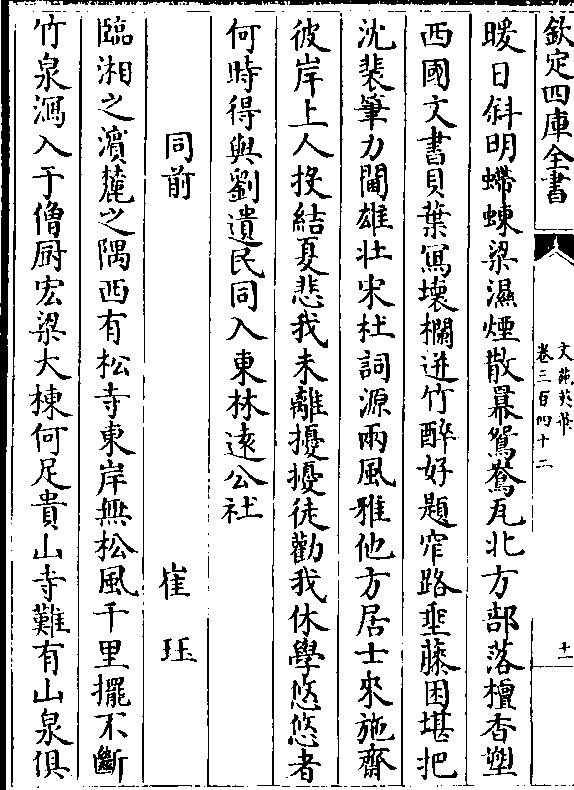 欽定四庫全書
文苑英華
卷三百四十二
十一
暖日斜明螮蝀梁濕煙散羃鴛鴦瓦北方部落檀香塑
西國文書貝葉寫壞欄迸竹醉好題窄路垂藤困堪把
沈裴筆力鬬雄壯宋杜詞源兩風雅他方居士來施齋
彼岸上人投結夏悲我未離擾擾徒勸我休學悠悠者
何時得與劉遺民同入東林遠公社
同前
崔珏
臨湘之濱麓之隅西有松寺東岸無松風千里擺不斷
竹泉瀉入于僧厨宏梁大棟何足貴山寺難有山泉俱